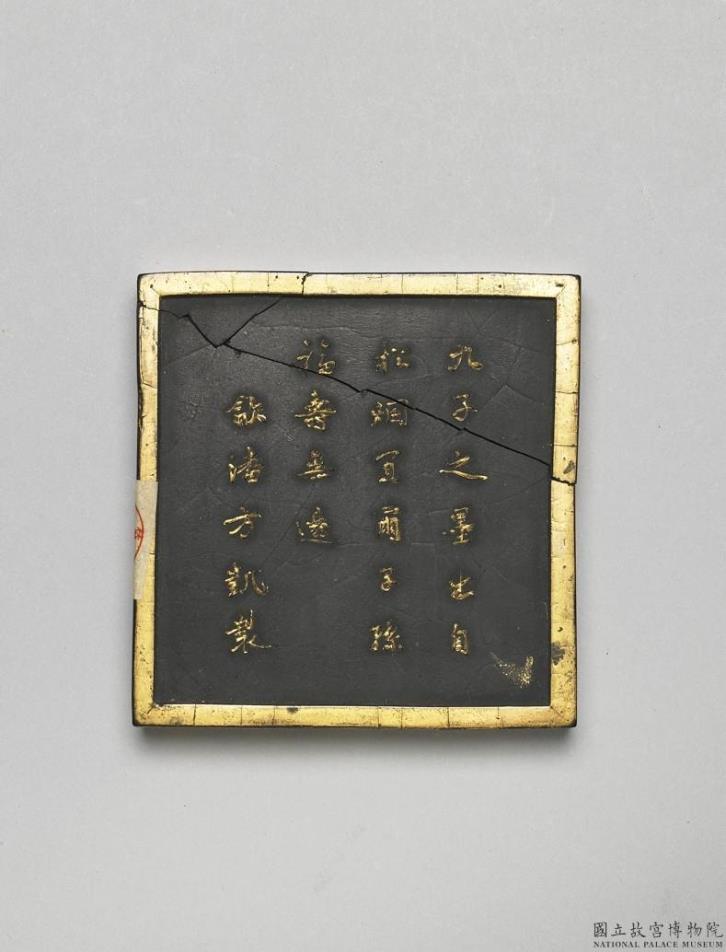 九子之墨出自
松烟宜爾子孫
福壽無邊
歙浦方凱製
國立故宮博物院
NATIONAL PALACE MUSEUM